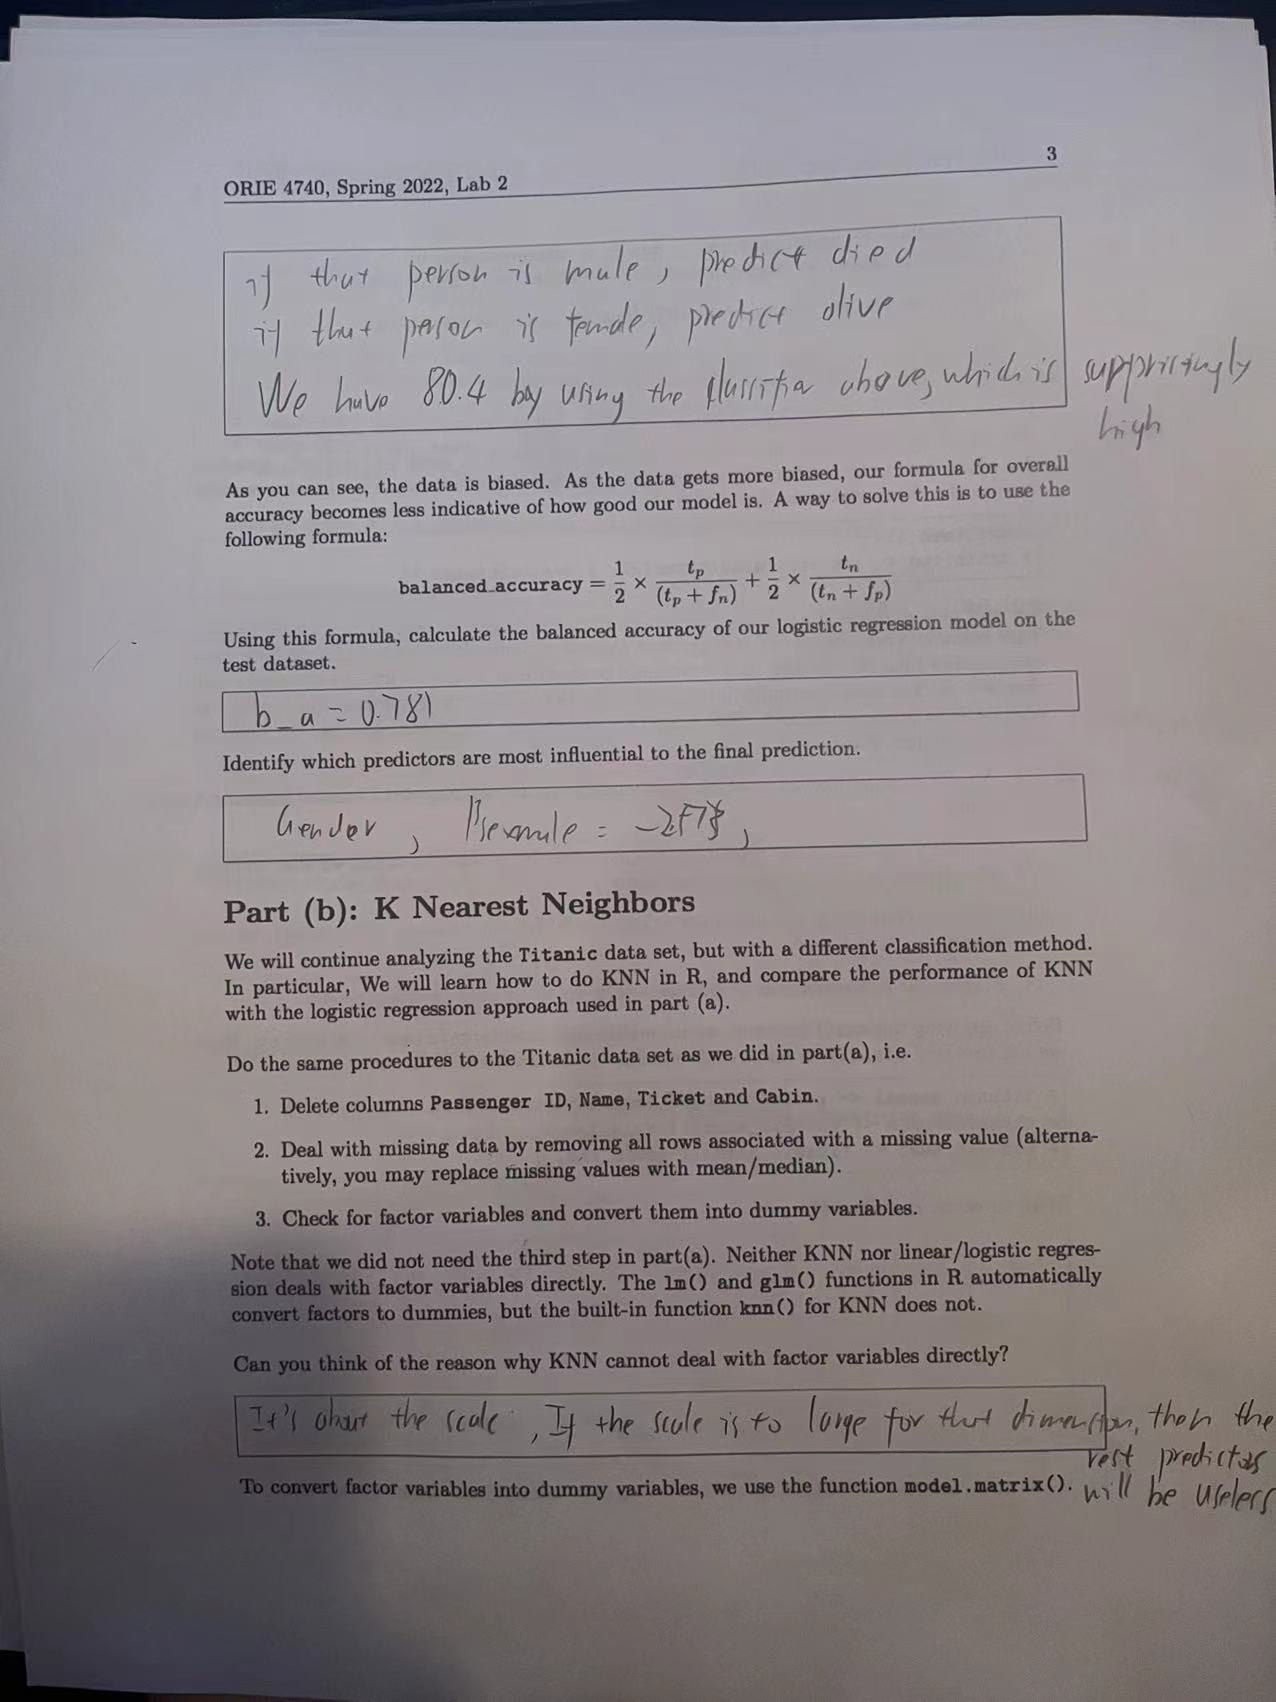 3
ORIE 4740, Spring 2022, Lab 2
if that person is male, predict died
if that person is female, predict alive
We have 80.4 by using the classifier above, which is supprisingly
high
As you can see, the data is biased. As the data gets more biased, our formula for overall
accuracy becomes less indicative of how good our model is. A way to solve this is to use the
following formula:
balanced_accuracy = 1/2 × tp/(tp + fn) + 1/2 × tn/(tn + fp)
Using this formula, calculate the balanced accuracy of our logistic regression model on the
test dataset.
b_a = 0.781
Identify which predictors are most influential to the final prediction.
Gender, βsexmale =
Part (b): K Nearest Neighbors
We will continue analyzing the Titanic data set, but with a different classification method.
In particular, We will learn how to do KNN in R, and compare the performance of KNN
with the logistic regression approach used in part (a).
Do the same procedures to the Titanic data set as we did in part(a), i.e.
1. Delete columns Passenger ID, Name, Ticket and Cabin.
2. Deal with missing data by removing all rows associated with a missing value (alterna-
tively, you may replace missing values with mean/median).
3. Check for factor variables and convert them into dummy variables.
Note that we did not need the third step in part(a). Neither KNN nor linear/logistic regres-
sion deals with factor variables directly. The lm() and glm() functions in R automatically
convert factors to dummies, but the built-in function knn() for KNN does not.
Can you think of the reason why KNN cannot deal with factor variables directly?
It's about the scale, If the scale is to large for that dimension, then the
rest predictors
will be useless
To convert factor variables into dummy variables, we use the function model.matrix().